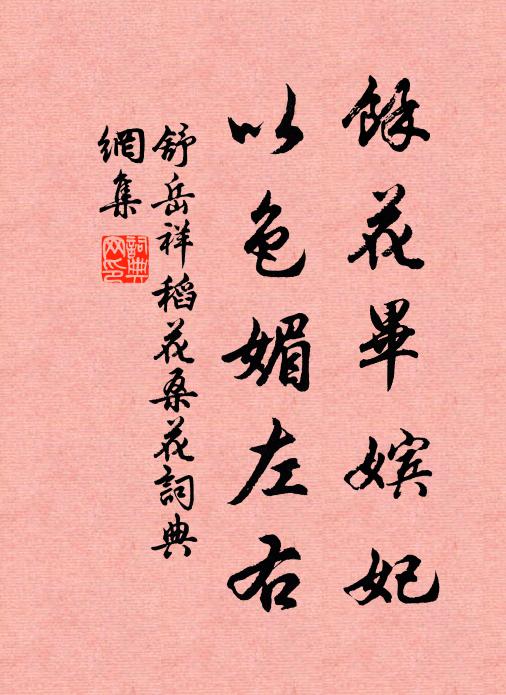 餘花畢嬪妃
以色媚左右
舒岳祥稻花桑花詞典
網集
詞典網印